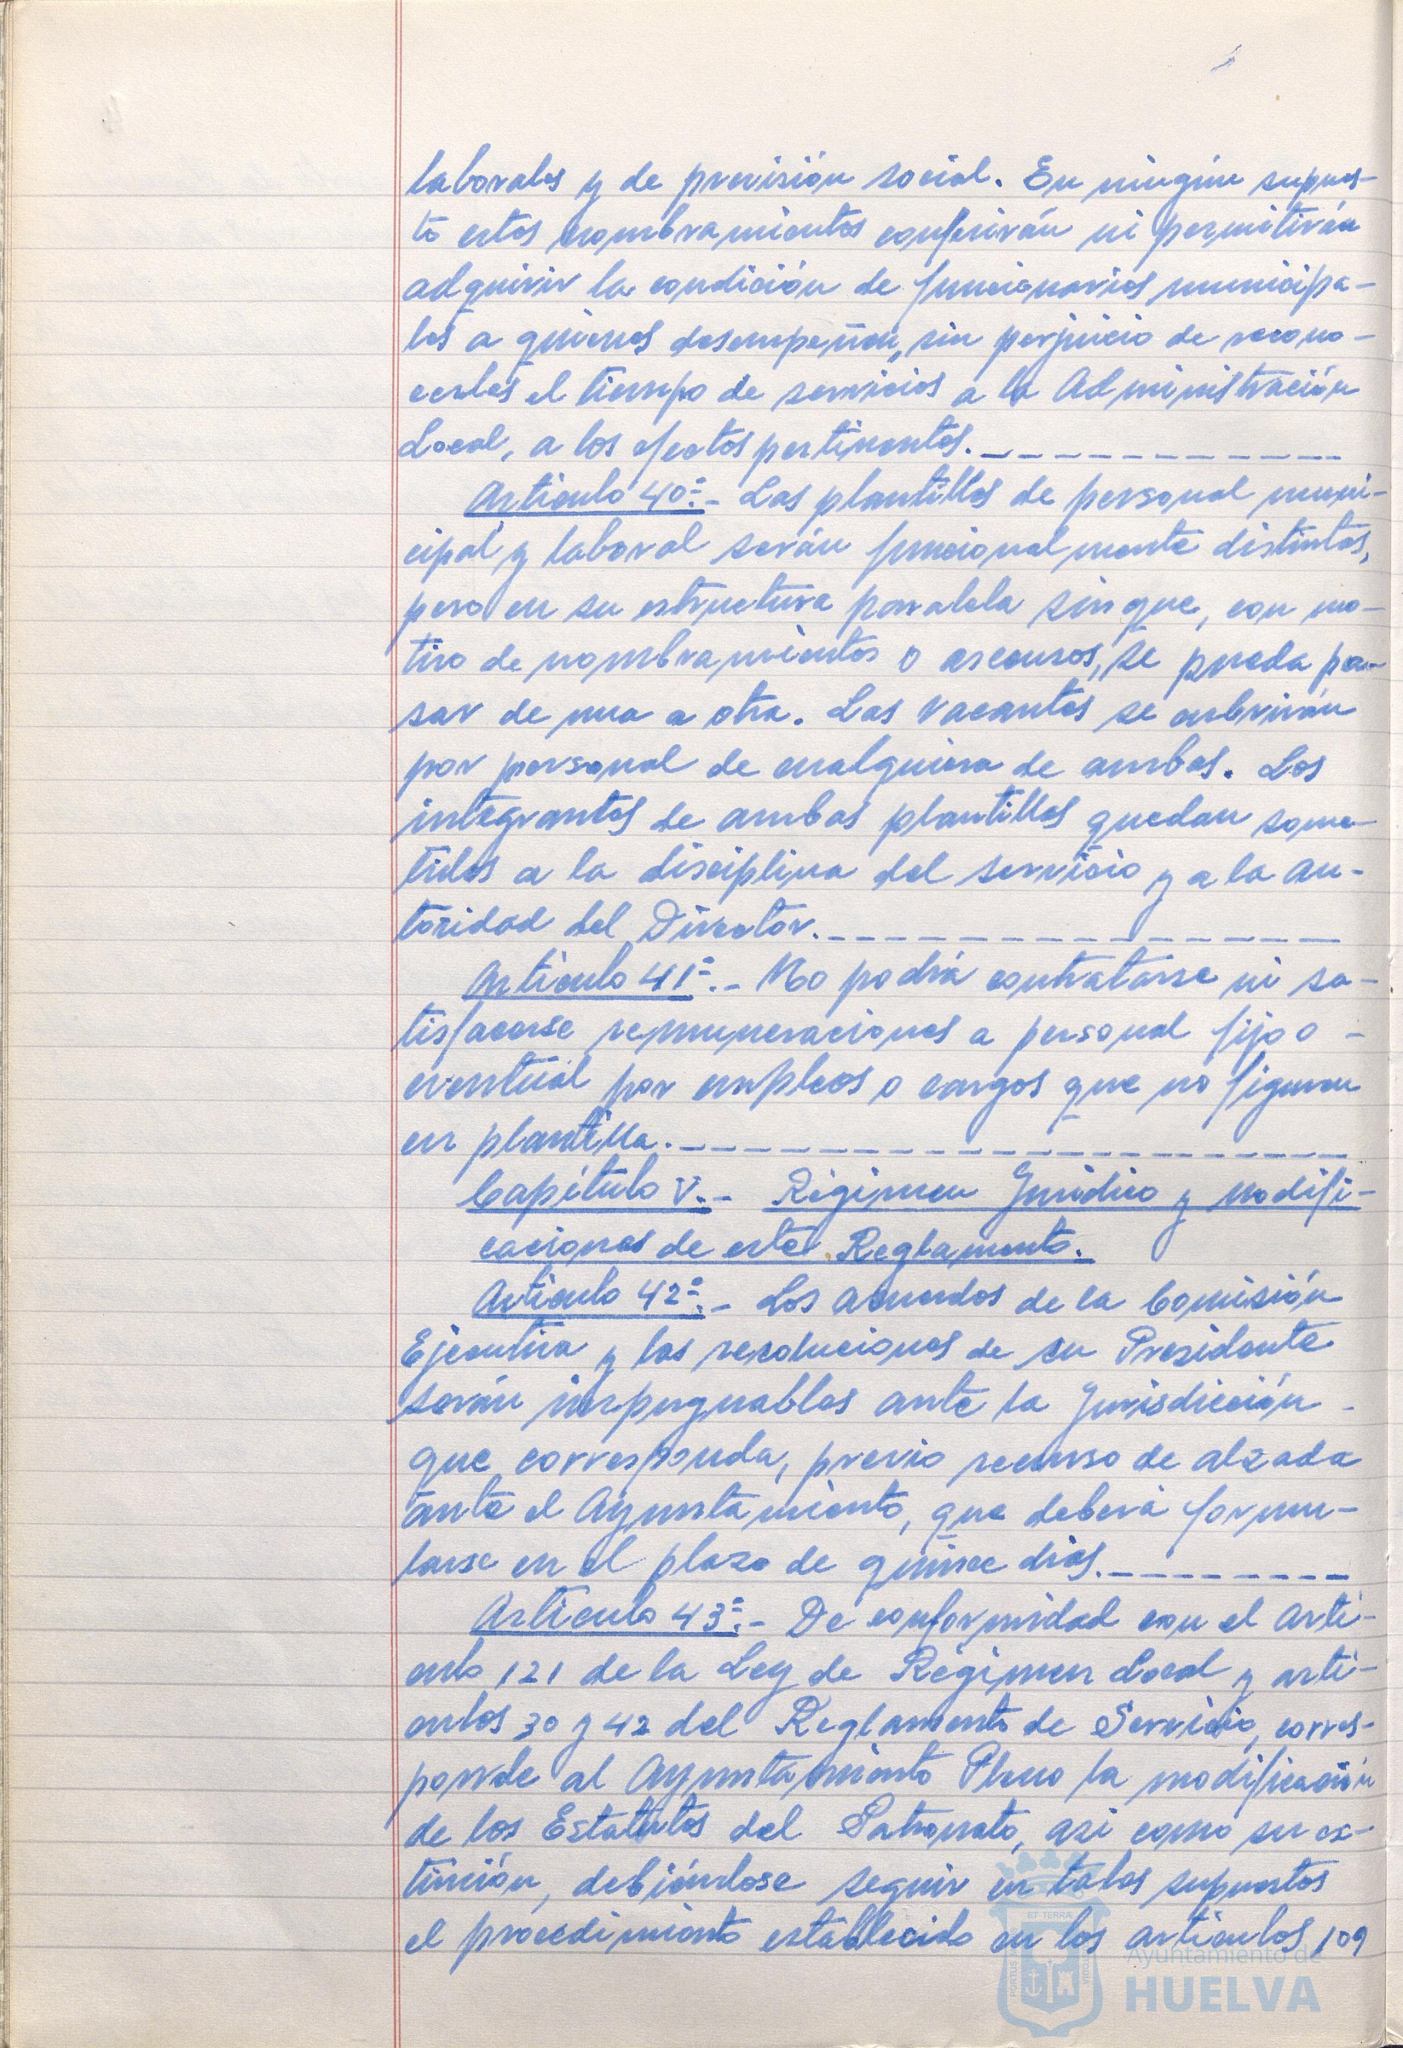 laborales y de previsión social. En ningún supues-
to estos nombramientos conferirán ni permitirán
adquirir la condición de funcionarios municipa-
les a quienes desempeñen, sin perjuicio de recono-
cerles el tiempo de servicios a la Administración
Local, a los efectos pertinentes.
Artículo 40º.- Las plantillas de personal muni-
cipal y laboral serán funcionalmente distintas,
pero en su estructura paralela sin que, con mo-
tivo de nombramientos o ascensos, se pueda pa-
sar de una a otra. Las vacantes se cubrirán
por personal de cualquiera de ambas. Los
integrantes de ambas plantillas quedan some-
tidos a la disciplina del servicio y a la au-
toridad del Director.
Artículo 41º.- No podrá contratarse ni sa-
tisfacerse remuneraciones a personal fijo o -
eventual por empleos o cargos que no figuren
en plantilla.
Capítulo V.- Régimen Jurídico y modifi-
caciones de este Reglamento.
Artículo 42º.- Los acuerdos de la Comisión
Ejecutiva y las resoluciones de su Presidente
serán impugnables ante la Jurisdicción -
que corresponda, previo recurso de alzada
ante el Ayuntamiento, que deberá formu-
larse en el plazo de quince días.
Artículo 43º.- De conformidad con el artí-
culo 121 de la Ley de Régimen Local y artí-
culos 30 y 42 del Reglamento de Servicio, corres-
ponde al Ayuntamiento Pleno la modificación
de los Estatutos del Patronato, asi como su ex-
tinción, debiéndose seguir en tales supuestos
el procedimiento establecido en los artículos 109
ET TERRÆ
PORTUS
CUSTODIA
Ayuntamiento de
HUELVA